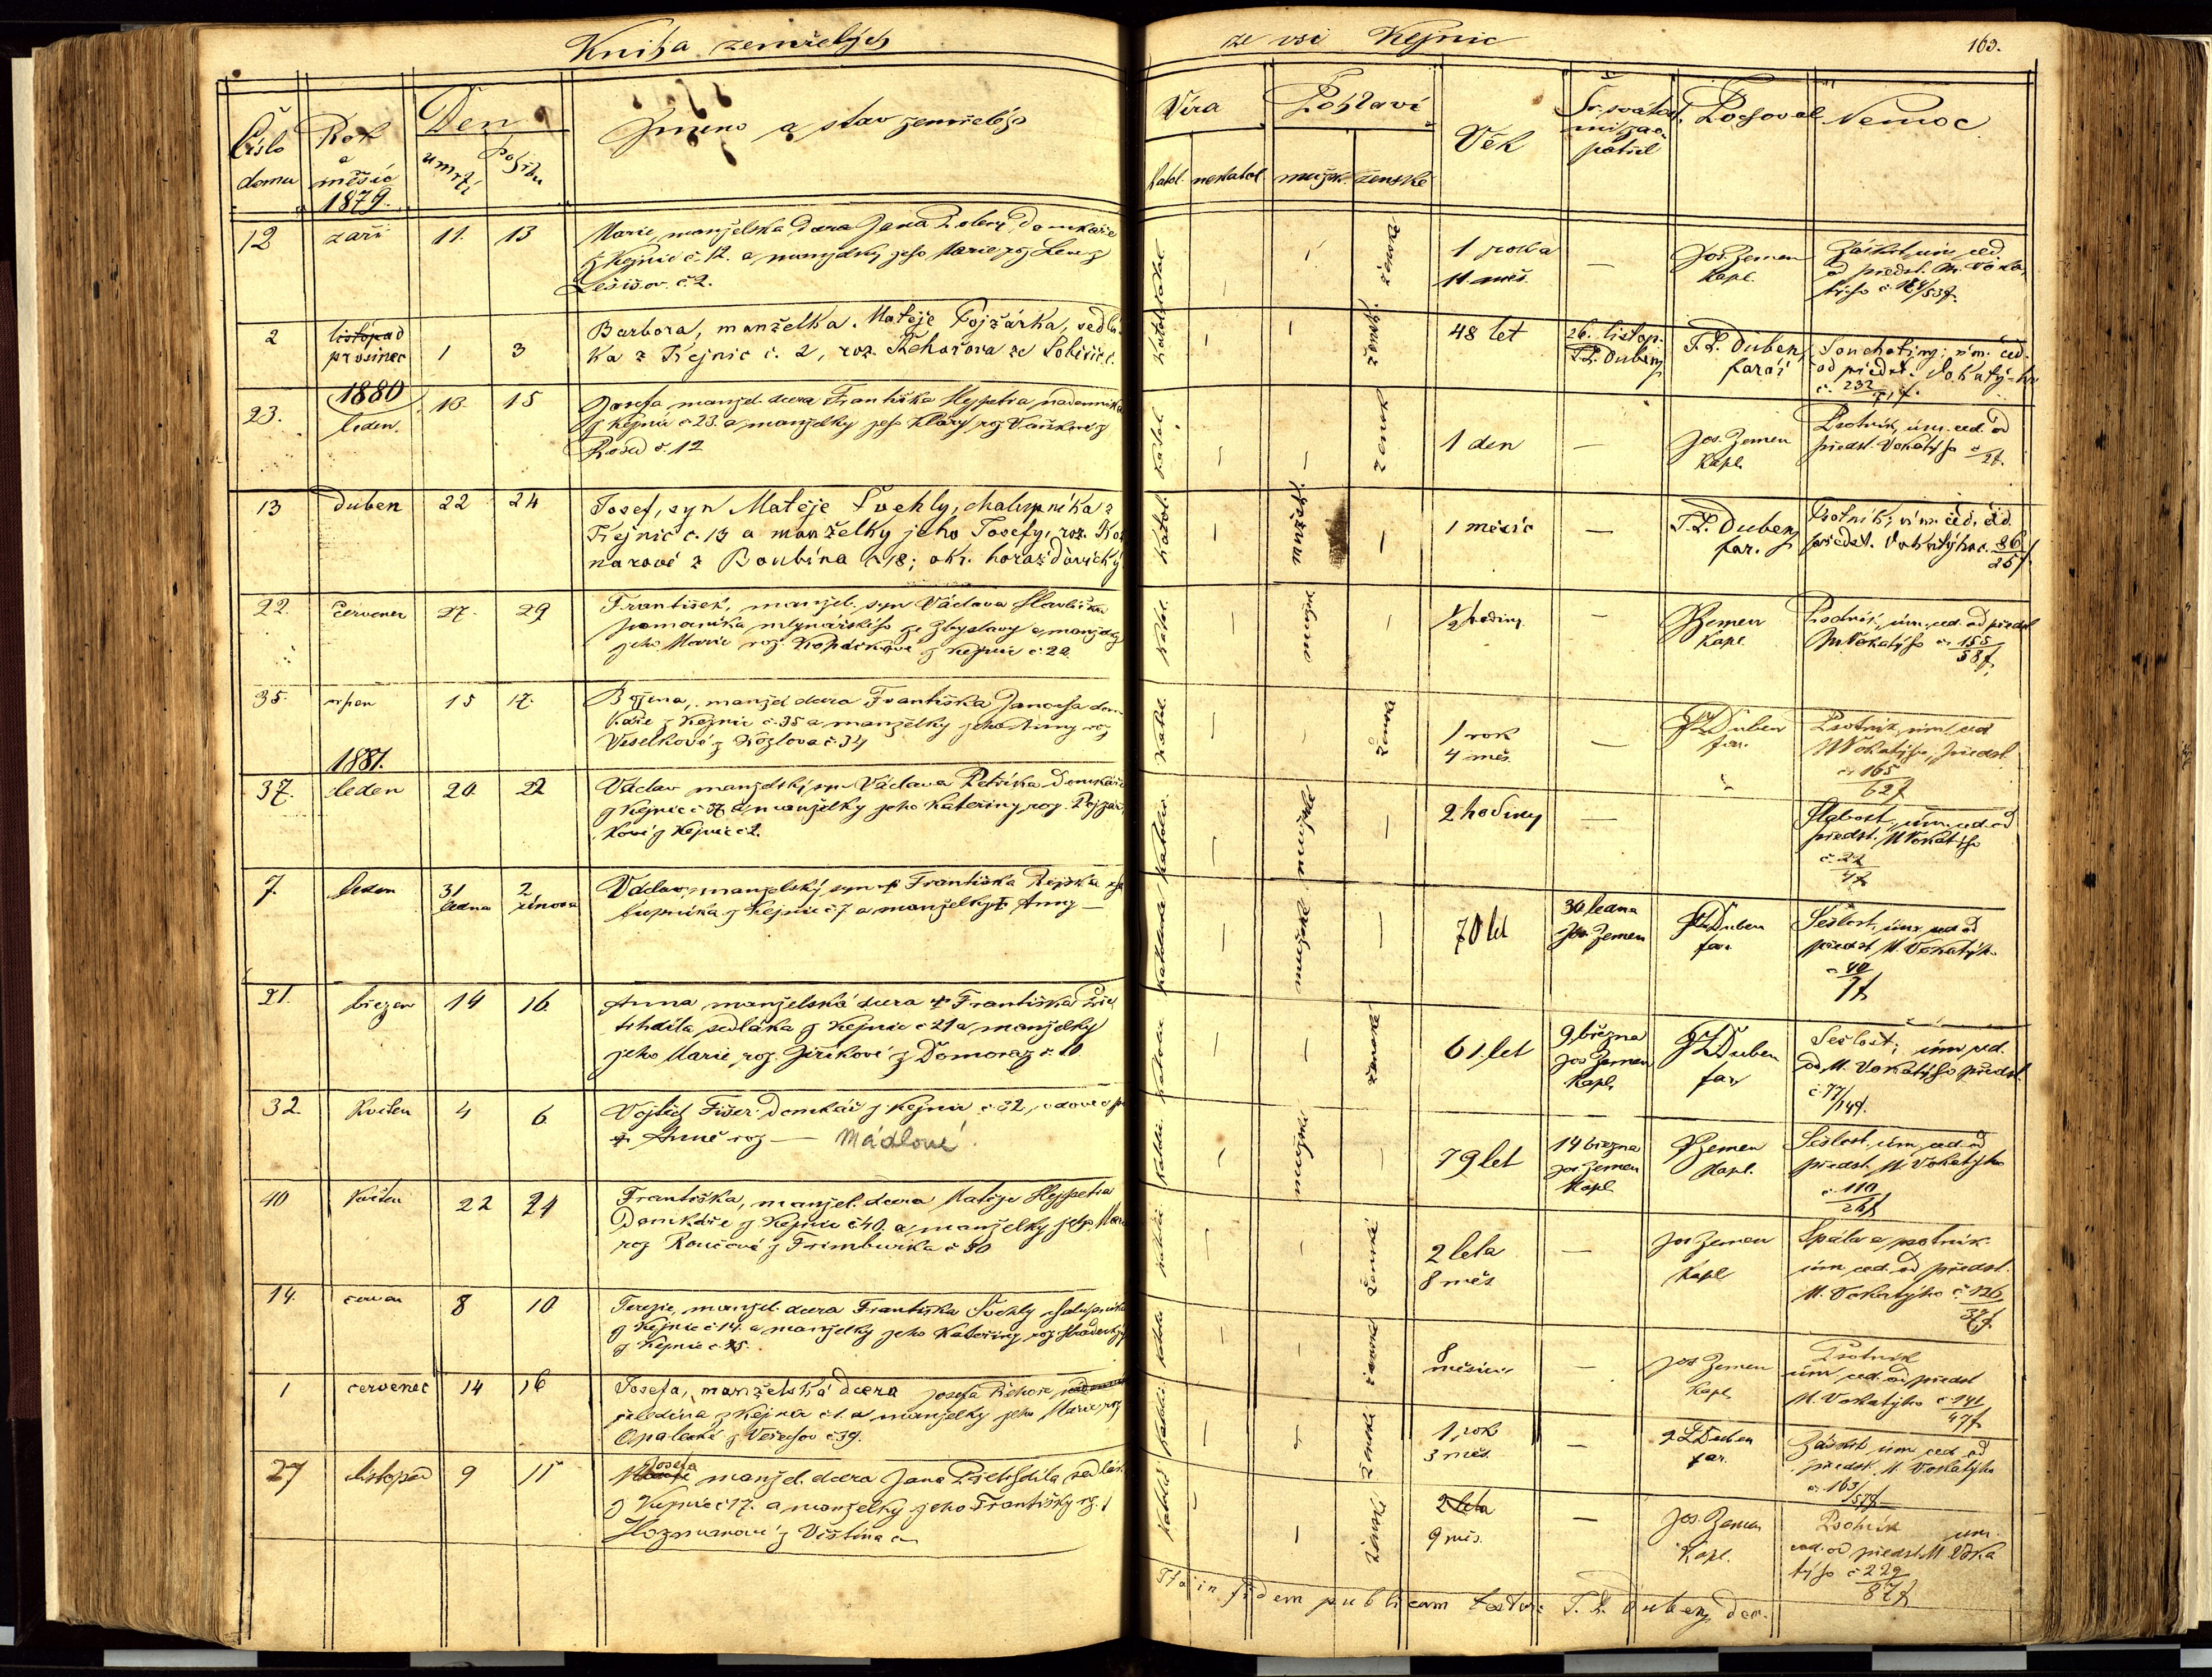 Kniha zemřelých
ze vsi Kejnic
163.
Číslo domu
Rok a měsíc
1879.
Den
úmrtí
pohřbu
Jméno a stav zemřelého
Víra
katol.
nekatol.
Pohlaví
mužsk.
ženské
Věk
Sv. svátostmi zaopatřil
Pochoval
Nemoc
12 září 11. 13
Marie, manželská dcera Jana domkáře
z Kejnic č. 12. a manželky jeho Marie roz.
č. 2.
katol. — — ženské
1 roku
11 měs.
—
Jos. Zemen
kapl.
úm. ced.
od předst. M. Voka
týho č. 184/53f.
2 listopad
prosinec 1 3
Barbora, manželka Matěje Pojžárka, sedlá-
ka z Kejnic č. 2, roz. Řehořova ze
katol. — — žensk.
48 let
26. listop.
F. L. Dubeny
F. L. Dubeny
farář
Souchotiny; úm. ced.
od předst. Vokatý-ho
č. 232
1880
23. leden. 13. 15
Josefa manžel. dcera Františka Hejpetra nádenníka
z Kejnic č. 23. a manželky jeho Kláry roz. Vaňkové z
č. 12
katol. — — žensk
1 den
—
Jos. Zemen
kapl.
Psotník, úm. ced. od
předst. Vokatýho č.
2f.
13 duben 22 24
Josef, syn Matěje Švehly, chalupníka z
Kejnic č. 13 a manželky jeho Josefy, roz. Kot
narové z Boubína č. 18; okr. horažďovický
katol. — mužské —
1 měsíc
—
F. L. Dubeny
far.
Psotník; úm. ced. od
předst. Vokatýho č. 86
25f
22. červenec 27. 29
František, manžel. syn Václava Havlíčka
pomocníka mlynářského ze Zbyslavy a manželky
jeho Marie roz. z Kejnic č. 22.
katol. — mužské —
½ hodiny
—
Zemen
kapl.
Psotník, úm. ced. od předst.
M. Vokatýho č. 155
58f.
35. srpen 15 17.
Božena, manžel. dcera Františka Janocha dom-
káře z Kejnic č. 35 a manželky jeho Anny roz.
Veselkové z Kozlova č. 34
katol. — — ženské
1 rok
4 měs.
—
F L Duben
far.
Psotník, úm. ced.
M Vokatýho, předst.
č. 165
62f
1881.
37. leden 20 22
Václav manželský syn Václava Petříka domkáře
z Kejnic č. 37 a manželky jeho Kateřiny roz. Pojžár-
kové z Kejnic č. 2.
katolic. — mužské —
2 hodiny
—
"
Slabost, úm. ced. od
předst. M Vokatýho
č. 22
4f
7. leden 31 ledna 2 února
Václav, manželský syn † Františka cha-
lupníka z Kejnic č. 7 a manželky † Anny —
katolické — mužské —
70 let
30 ledna
Jos. Zemen
F L Duben
far
Sešlost, úm. ced. od
předst. M. Vokatýho
č. 40
9f
21. březen 14 16.
Anna manželská dcera † Františka Přet-
chdila sedláka z Kejnic č. 21 a manželky
jeho Marie, roz. Jiříkové z Domoraz č. 10
katolic — — ženské
61 let
9 března
Jos Zemen
kapl.
F L Duben
far
Sešlost; úm. ced.
od M. Vokatýho předst.
č. 77/14f.
32. květen 4 6.
Vojtěch Fišer domkář z Kejnic č. 32, vdovec po
† Anně roz — Mádlové.
katolic. — mužské —
79 let
14 března
Jos Zemen
kapl
Zemen
kapl.
Sešlost, úm. ced. od
předst. M. Vokatýho
č. 110
26f
40 květen 22 24
Františka, manžel. dcera Matěje Hejpetra
domkáře z Kejnic č. 40. a manželky jeho Marie
roz Roučové z Frimburka č. 30
katolic — — ženské
2 leta
8 měs.
—
Jos Zemen
kapl
Spála a psotník
úm ced. od předst.
M. Vokatýho č. 126
37f.
14. červen 8 10
Terezie, manžel. dcera Františka Švehly chalupníka
z Kejnic č. 14. a manželky jeho Kateřiny roz
z Kejnic č. 25.
katolic — — ženské
8
měsíců
—
Jos Zemen
kapl
Psotník
úm ced. od předst
M. Vokatýho č. 141
47f
1 červenec 14 16
Josefa, manželská dcera Josefa Řehoře
čeledína z Kejnic č. 1. a manželky jeho Marie roz
Opalecké z Velechov č. 39.
katolic — — ženské
1 rok
3 měs.
—
F L Duben
far.
Záškrt, úm ced. od
předst. M. Vokatýho
č. 163/57f
27 listopad 9 11
Josefa manžel. dcera Jana Přetchdila sedlák
z Kejnic č. 17. a manželky jeho Františky roz.
z Vištína č.
katolic — — ženské
2 leta
9 měs.
—
Jos. Zemen
kapl.
Psotník úm.
ced. od předst. M. Voka
týho č. 229
87f
Ita in fidem publicam testor: F. L. Dubeny děk.